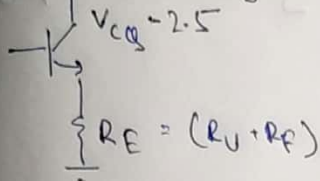 V_CQ - 2.5
R_E = (R_U + R_F)